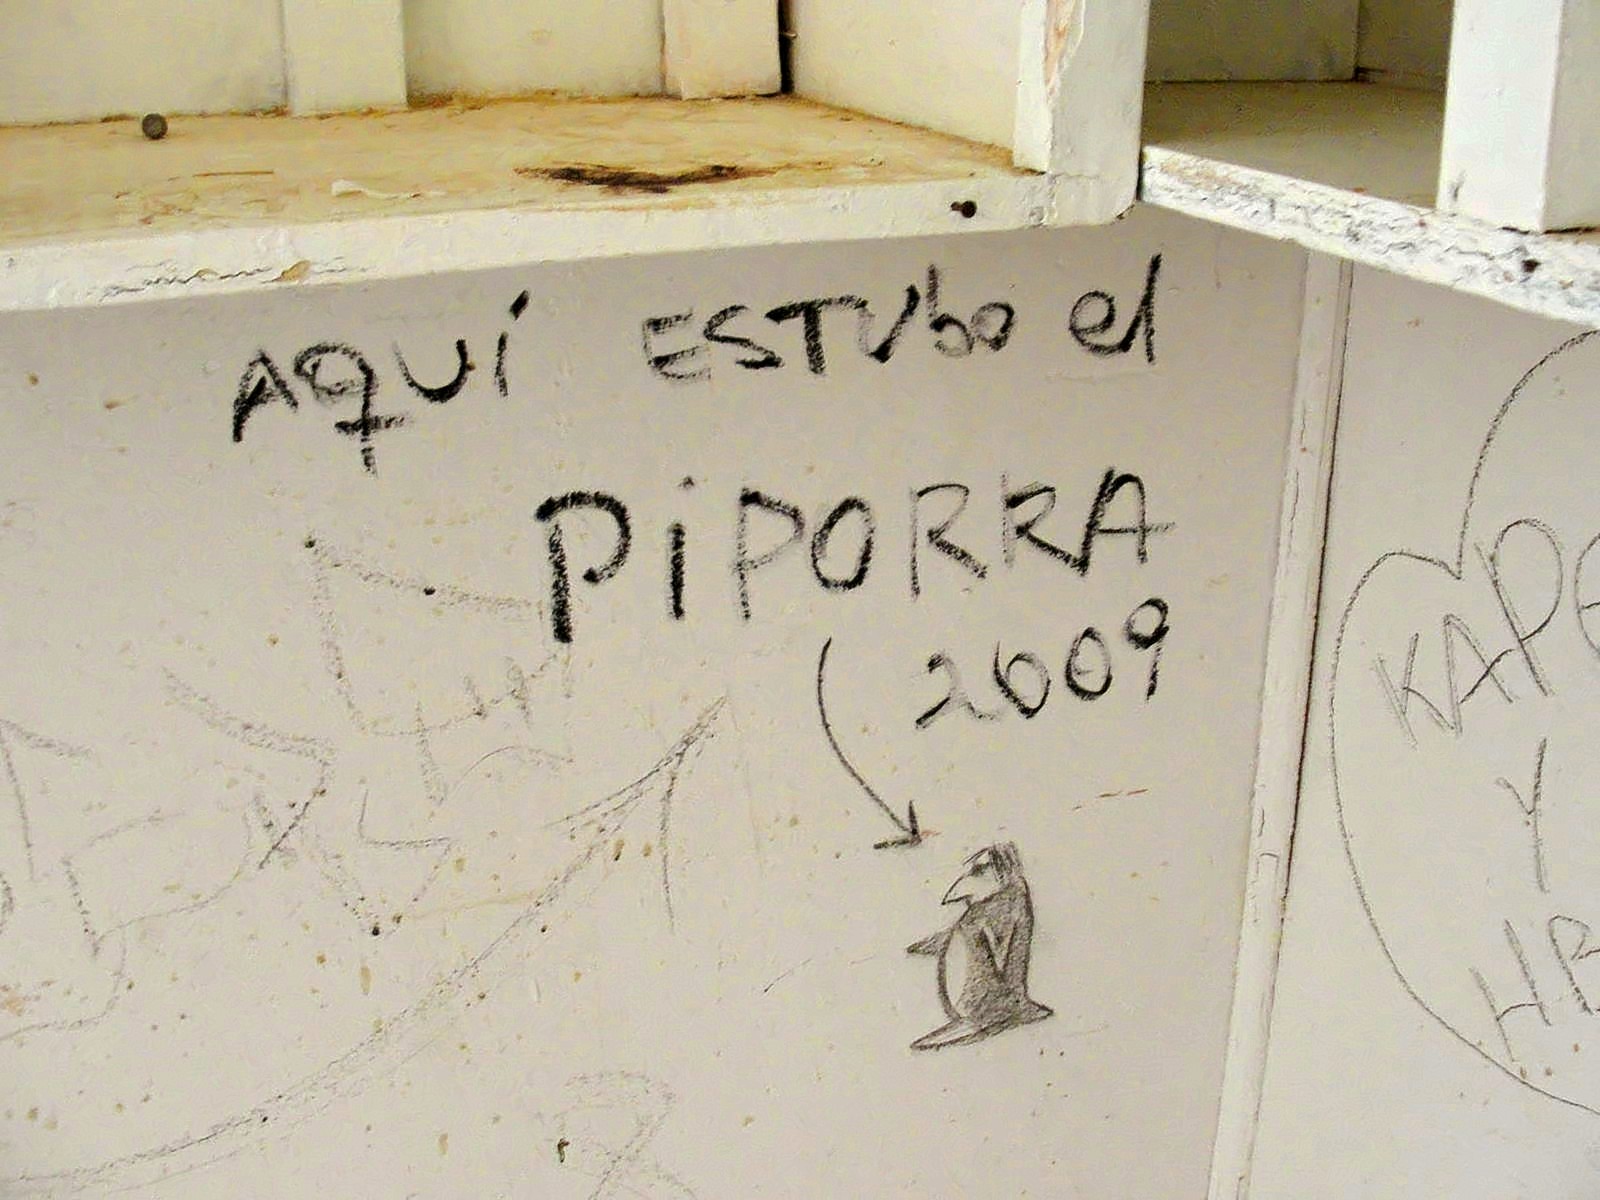 AQUÍ ESTUbo el
PiPORRA
2009
Y